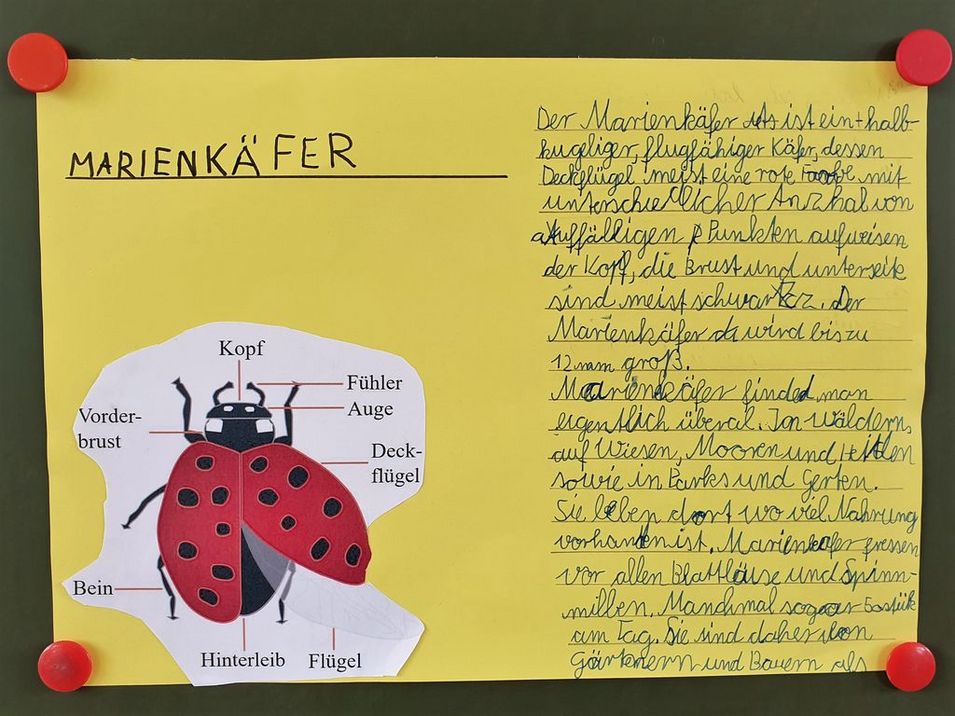 MARIENKÄFER
Kopf
Fühler
Auge
Vorder-
brust
Deck-
flügel
Bein
Hinterleib
Flügel
Der Marienkäfer ist ein halb-
kugeliger, flugfähiger Käfer, dessen
Deckflügel meist eine rote Farbe mit
unterschiedlicher Anzhal von
auffälligen Punkten aufweisen
der Kopf, die Brust und unterseite
sind meist schwarz. Der
Marienkäfer wird bis zu
12 mm groß.
Marienkäfer finded man
eigentlich überal. In Wäldern,
auf Wiesen, Mooren und Heiden
sowie in Parks und Gerten.
Sie leben dort wo viel Nahrung
vorhanden ist. Marienkäfer fressen
vor allen Blattläuse und Spinn-
milben. Manchmal sogar 50 stük
am Tag. Sie sind daher von
Gärtnern und Bauern als